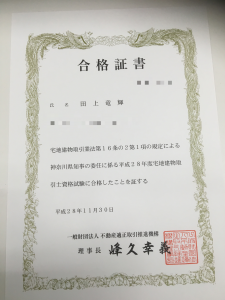 合格証書
氏名 田上竜輝
宅地建物取引業法第16条の2第1項の規定による
神奈川県知事の委任に係る平成28年度宅地建物取
引士資格試験に合格したことを証する
平成28年11月30日
一般財団法人 不動産適正取引推進機構
理事長 峰久幸義